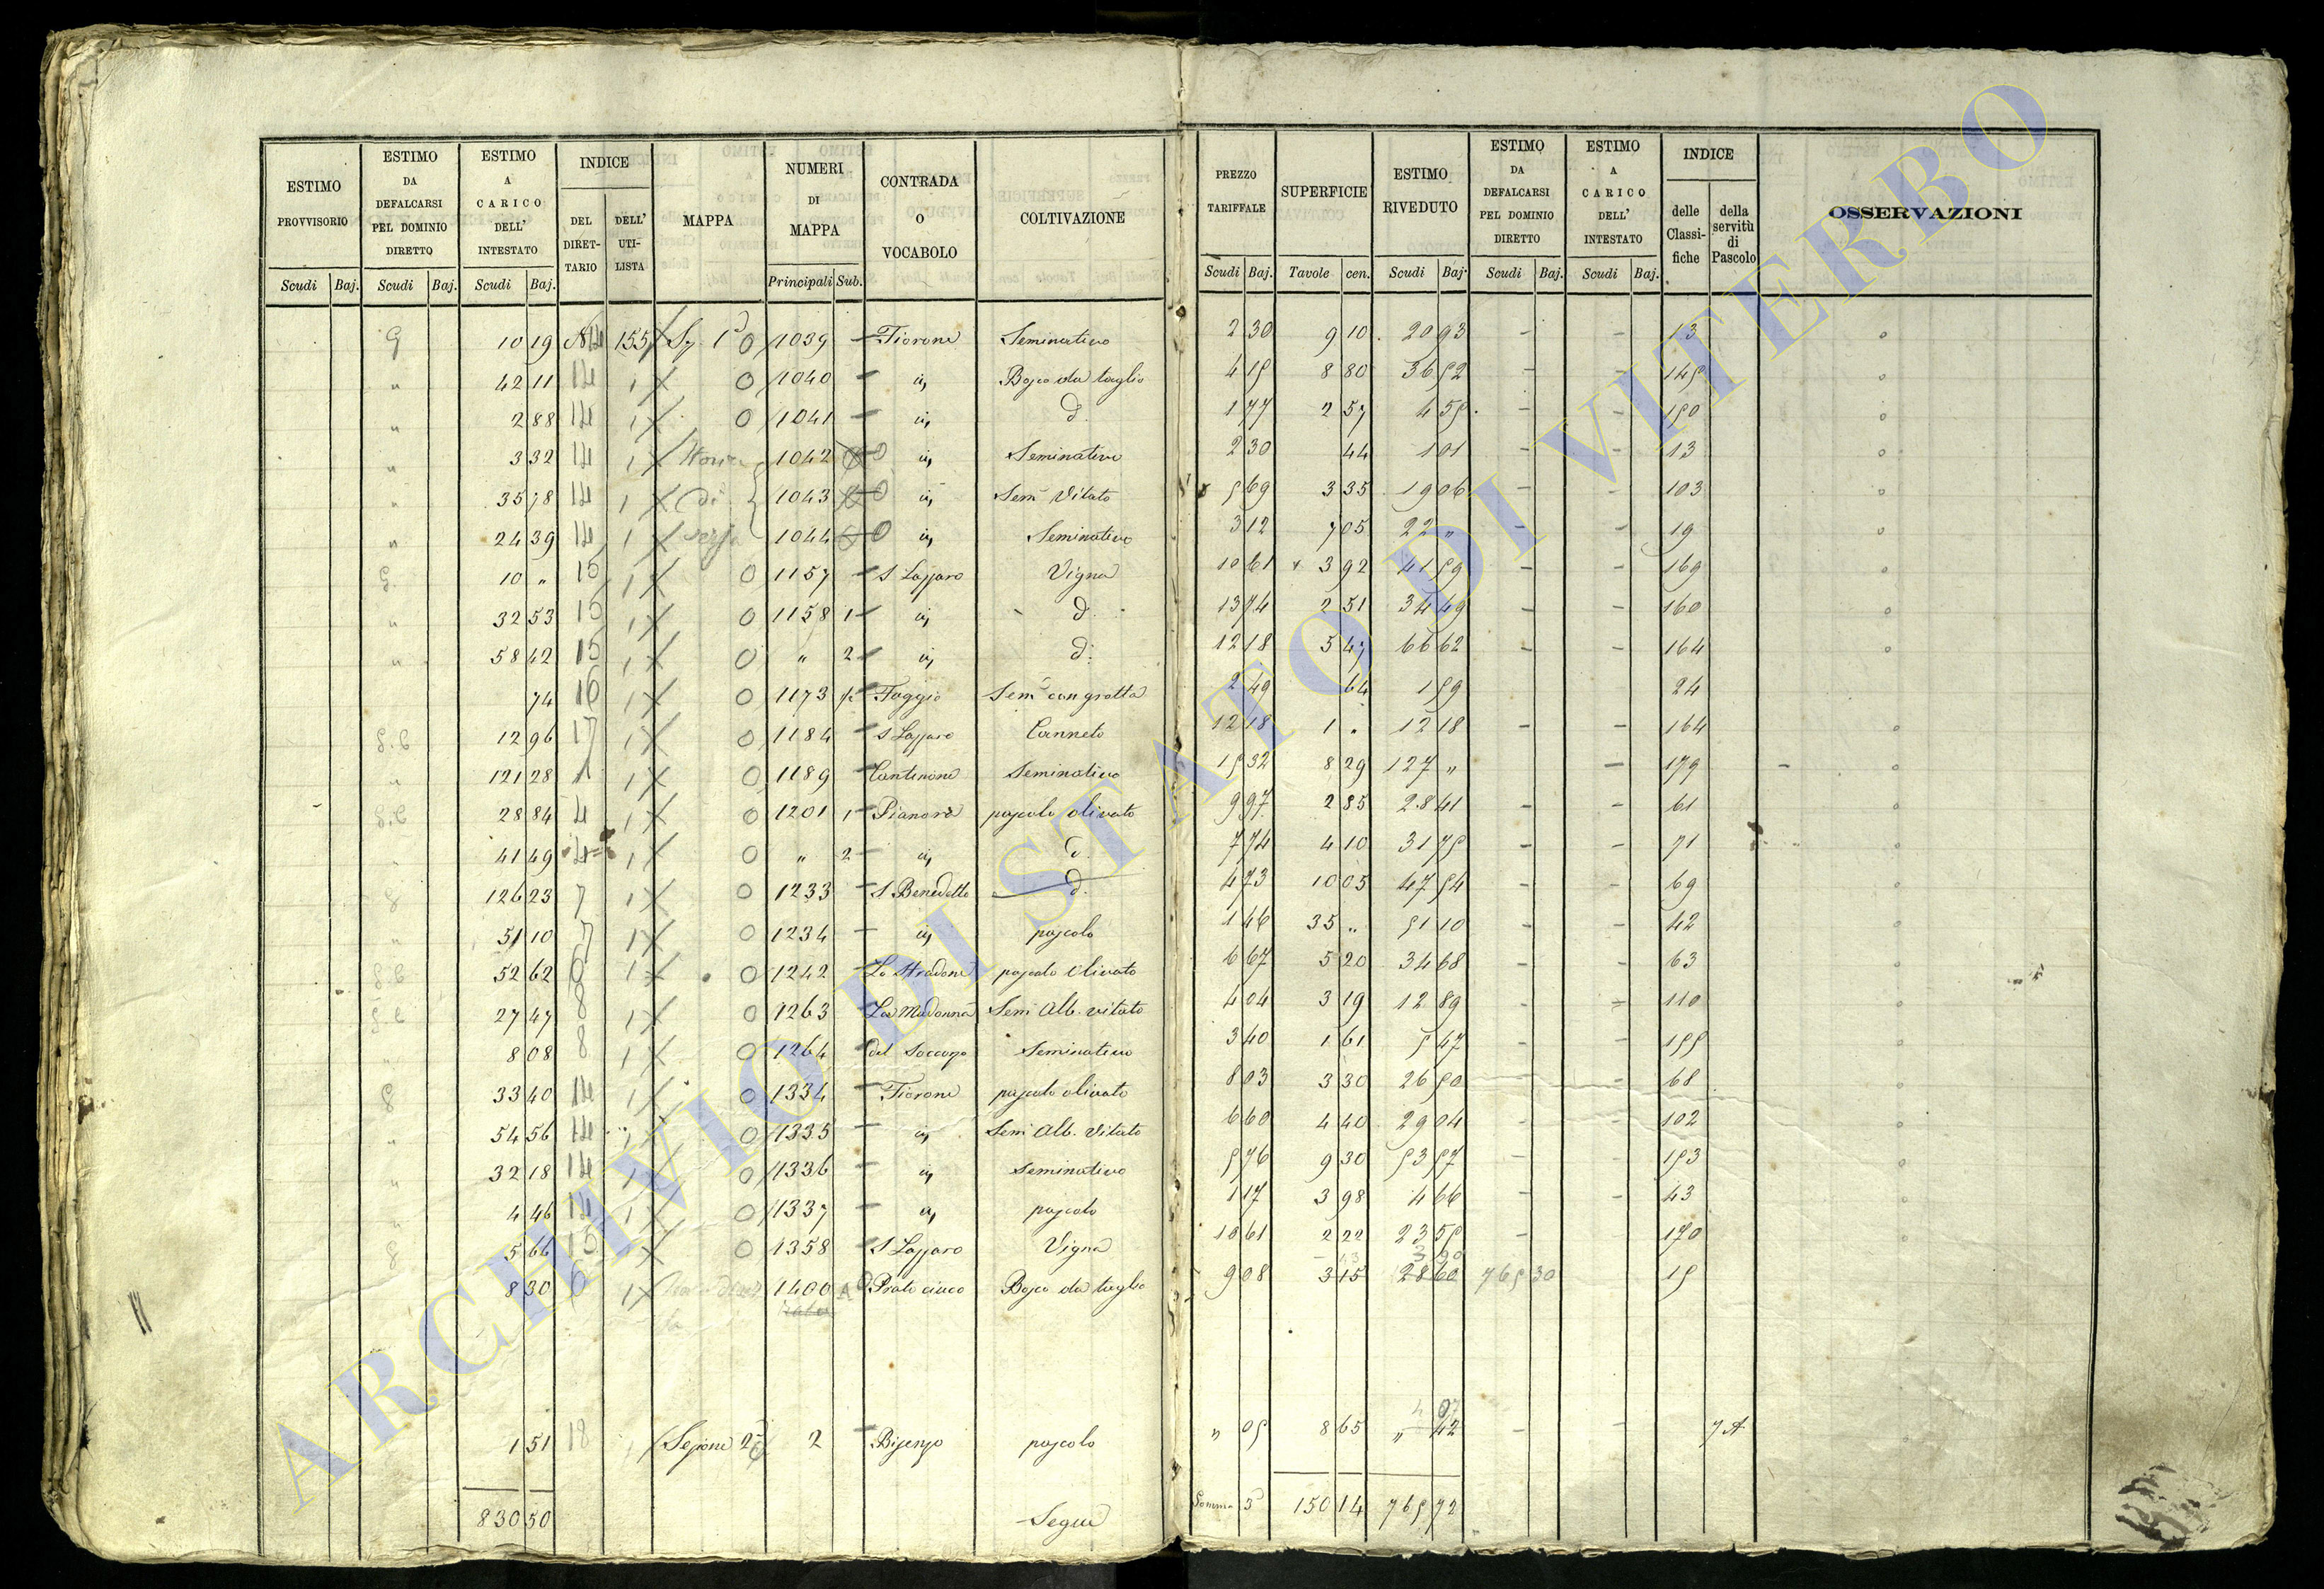 ESTIMO PROVVISORIO | ESTIMO DA DEFALCARSI PEL DOMINIO DIRETTO | ESTIMO A CARICO DELL' INTESTATO | INDICE | MAPPA | NUMERI DI MAPPA | CONTRADA O VOCABOLO | COLTIVAZIONE | PREZZO TARIFFALE | SUPERFICIE | ESTIMO RIVEDUTO | ESTIMO DA DEFALCARSI PEL DOMINIO DIRETTO | ESTIMO A CARICO DELL' INTESTATO | INDICE | OSSERVAZIONI
DEL DIRET-TARIO | DELL' UTI-LISTA | delle Classi-fiche | della servitù di Pascolo
Scudi | Baj. | Scudi | Baj. | Scudi | Baj. | Principali | Sub. | Scudi | Baj. | Tavole | cen. | Scudi | Baj. | Scudi | Baj. | Scudi | Baj.
10 19 | 14 | 155 | 0 | 1039 | - | Fiorone | Seminativo | 2 30 | 9 10 | 20 93 | - | - | 13
" | 42 11 | 14 | 1 | 0 | 1040 | - | id | Bosco da taglio | 4 15 | 8 80 | 36 52 | - | - | 145
" | 2 88 | 14 | 1 | 0 | 1041 | - | id | d. | 1 77 | 2 57 | 4 55 | - | - | 150
" | 3 32 | 14 | 1 | 1042 | 0 | id | Seminativo | 2 30 | 44 | 1 01 | - | - | 13
" | 35 78 | 14 | 1 | di | 1043 | 0 | id | Sem Vitato | 5 69 | 3 35 | 19 06 | - | - | 103
" | 24 39 | 14 | 1 | 1044 | 0 | id | Seminativo | 3 12 | 7 05 | 22 " | - | - | 19
10 " | 15 | 1 | 0 | 1157 | - | S Lazzaro | Vigna | 10 61 | 3 92 | 41 59 | - | - | 169
" | 32 53 | 15 | 1 | 0 | 1158 | 1 | id | d. | 13 74 | 2 51 | 34 49 | - | - | 160
" | 58 42 | 15 | 1 | 0 | " | 2 | id | d. | 12 18 | 5 47 | 66 62 | - | - | 164
74 | 16 | 1 | 0 | 1173 | Faggio | Sem con grotta | 2 49 | 64 | 1 59 | 24
12 96 | 17 | 1 | 0 | 1184 | - | S Lazzaro | Canneto | 12 18 | 1 " | 12 18 | - | - | 164
" | 121 28 | 1 | 0 | 1189 | - | Cantinone | Seminativo | 15 32 | 8 29 | 127 " | - | 179
28 84 | 4 | 1 | 0 | 1201 | 1 | Pianora | pascolo olivato | 9 97 | 2 85 | 28 41 | - | - | 61
41 49 | 4 | 1 | 0 | " | 2 | id | d. | 7 74 | 4 10 | 31 75 | - | - | 71
126 23 | 7 | 1 | 0 | 1233 | - | S Benedetto | d. | 4 73 | 10 05 | 47 54 | - | - | 69
51 10 | 7 | 1 | 0 | 1234 | - | id | pascolo | 1 46 | 35 " | 51 10 | - | - | 42
52 62 | 1 | 0 | 1242 | - | Lo Stradone | pascolo olivato | 6 67 | 5 20 | 34 68 | - | - | 63
27 47 | 8 | 1 | 0 | 1263 | La Madonna | Sem Alb. vitato | 4 04 | 3 19 | 12 89 | - | - | 110
8 08 | 8 | 1 | 0 | 1264 | del Soccorso | Seminativo | 3 40 | 1 61 | 5 47 | - | - | 155
33 40 | 14 | 1 | 0 | 1334 | - | Fiorone | pascolo olivato | 8 03 | 3 30 | 26 50 | - | - | 68
54 56 | 14 | 1 | 0 | 1335 | - | id | Sem Alb. Vitato | 6 60 | 4 40 | 29 04 | - | - | 102
32 18 | 14 | 1 | 0 | 1336 | - | id | Seminativo | 5 76 | 9 30 | 53 57 | - | - | 153
4 46 | 14 | 1 | 0 | 1337 | - | id | pascolo | 1 17 | 3 98 | 4 66 | - | - | 43
5 66 | 15 | 1 | 0 | 1358 | - | S Lazzaro | Vigna | 10 61 | 2 22 | 23 55 | - | 170
8 30 | 6 | 1 | 1400 | A | Prato cieco | Bosco da taglio | 9 08 | 3 15 | 28 60 | 765 30 | 15
1 51 | 18 | Sezione 2 | 2 | - | Bisenzo | pascolo | " 05 | 8 65 | " 42 | - | - | 7 A
830 50 | Segue | Somma | 150 14 | 765 72
ARCHIVIO DI STATO DI VITERBO